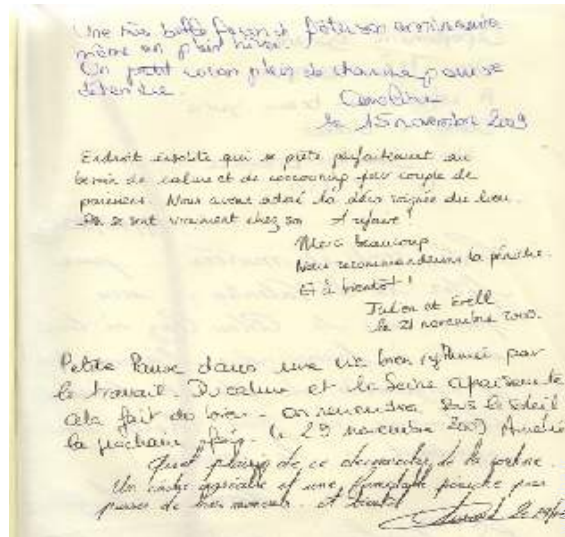 Une très belle façon de fêter son anniversaire
même en plein hiver.
Un petit cocon plein de charme pour se
détendre.
le 15 novembre 2009
Endroit insolite qui se prête parfaitement au
besoin de calme et de cocooning pour couple de
parisiens. Nous avons adoré la déco soignée du lieu.
On se sent vraiment chez soi. A refaire !
Merci beaucoup
Nous recommanderons la péniche.
Et à bientôt !
Julien et
le 21 novembre 2009.
Petite Pause dans une vie bien rythmée par
le travail. Du calme et la Seine apaisante
cela fait du bien. on reviendra sous le soleil
la prochaine fois. le 29 novembre 2009
Quel plaisir de ce de la
Un cadre agréable et une péniche pour
passer de bons moments. et